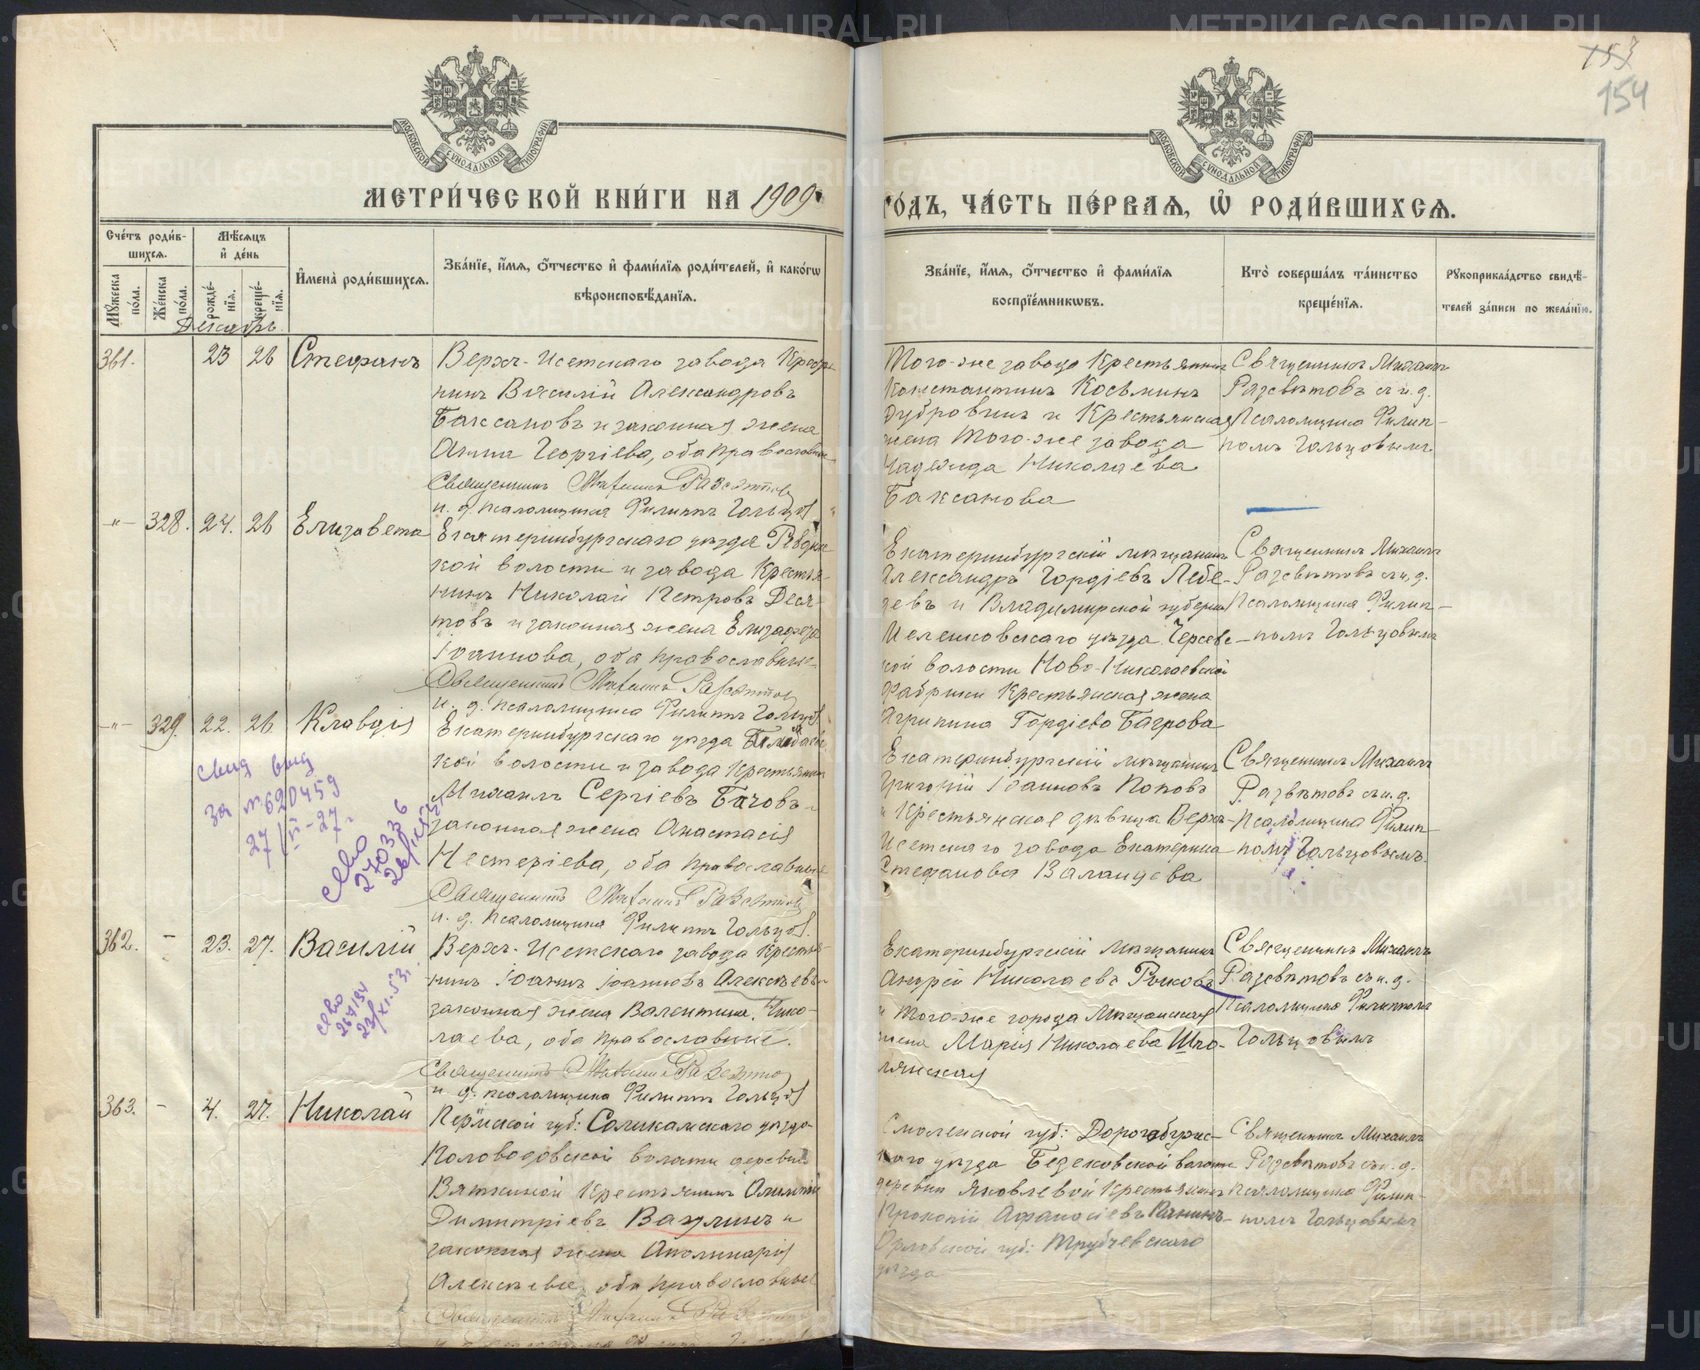 153
154
МОСКОВСКОЙ СѴНОДАЛЬНОЙ ТИПОГРАФІИ
МОСКОВСКОЙ СѴНОДАЛЬНОЙ ТИПОГРАФІИ
МЕТРИ́ЧЕСКОЙ КНИ́ГИ НА 1909
ГО́ДЪ, ЧА́СТЬ ПЕ́РВАЯ, Ѽ РОДИ́ВШИХСЯ.
Сче́тъ роди́в-
шихся.
Мꙋ́жеска по́ла.
Же́нска по́ла.
Мѣ́сяцъ
и҆ де́нь
рожде́-
нїя.
креще́-
нїя.
И҆мена̀ роди́вшихся.
Зва́нїе, и҆́мя, ѻ҆́тчество и҆ фами́лїя роди́телей, и҆ како́гѡ
вѣроисповѣ́данїя.
Зва́нїе, и҆́мя, ѻ҆́тчество и҆ фами́лїя
воспрїе́мникѡвъ.
Кто̀ соверша́лъ та́инство
креще́нїя.
Рꙋкоприкла́дство свидѣ́-
телей за́писи по жела́нїю.
Декабрь
361. 23 26 Стефанъ
Верхъ-Исетскаго завода Кресть-
янинъ Василій Александровъ
Баксановъ и законная жена
Анна Георгіева, оба православные
Священникъ Михаилъ Развѣтовъ
и. д. псаломщика Филиппъ Гольцовъ
Того-же завода Крестьянинъ
Константинъ Косьминъ
Дубровинъ и Крестьянская
жена того-же завода
Надежда Николаева
Баксанова
Священникъ Михаилъ
Развѣтовъ съ и. д.
Псаломщика Филип-
помъ Гольцовымъ.
-"- 328. 24. 26 Елизавета
Екатеринбургскаго уѣзда Ревдин-
ской волости и завода Крестья-
нинъ Николай Петровъ Деся-
товъ и законная жена Елизавета
Іоаннова, оба православные
Священникъ Михаилъ Развѣтовъ
и. д. псаломщика Филиппъ Гольцовъ
Екатеринбургскій мѣщанинъ
Александръ Гордіевъ Лебе-
девъ и Владимирской губерніи
Меленковскаго уѣзда Черсев-
ской волости Ново-Николаевской
фабрики Крестьянская жена
Агрипина Гордіева Багрова
Священникъ Михаилъ
Развѣтовъ съ и. д.
Псаломщика Филип-
помъ Гольцовымъ
-"- 329. 22. 26 Клавдія
Екатеринбургскаго уѣзда
кой волости и завода Крестьянинъ
Михаилъ Сергіевъ Бачовъ
законная жена Анастасія
Нестеріева, оба православные
Священникъ Михаилъ Развѣтовъ
и. д. псаломщика Филиппъ Гольцовъ
Екатеринбургскій мѣщанинъ
Григорій Іоанновъ Поповъ
и Крестьянская дѣвица Верхъ-
Исетскаго завода Екатерина
Стефанова Валанцева
Священникъ Михаилъ
Развѣтовъ съ и. д.
Псаломщика Филип-
помъ Гольцовымъ.
свид выд
за № 620459
27/II-27 г
270336
362. - 23. 27. Василій
Верхъ-Исетскаго завода Крестья-
нинъ Іоаннъ Іоанновъ Алексѣевъ
законная жена Валентина Нико-
лаева, оба православные.
Священникъ Михаилъ Развѣтовъ
и. д. псаломщика Филиппъ Гольцовъ
Екатеринбургскій мѣщанинъ
Андрей Николаевъ Рыковъ
и того-же города Мѣщанская
жена Марія Николаева Шко-
лянская
Священникъ Михаилъ
Развѣтовъ съ и. д.
Псаломщика Филиппомъ
Гольцовымъ
267194
23/XI-53.
363. - 4. 27. Николай
Пермской губ: Соликамскаго уѣзда
Половодовской волости деревни
Вяткиной Крестьянинъ
Димитріевъ Ваулинъ и
законная жена Аполинарія
Алексѣева, оба православные
Священникъ Михаилъ Развѣтовъ
Смоленской губ: Дорогобужс-
каго уѣзда Бедековской волости
деревни Яковлевой Крестьянинъ
Прокопій Афанасіевъ Канинъ
Орловской губ: Трубчевскаго
уѣзда
Священникъ Михаилъ
Развѣтовъ съ и. д.
псаломщика Филип-
помъ Гольцовымъ
METRIKI.GASO-URAL.RU